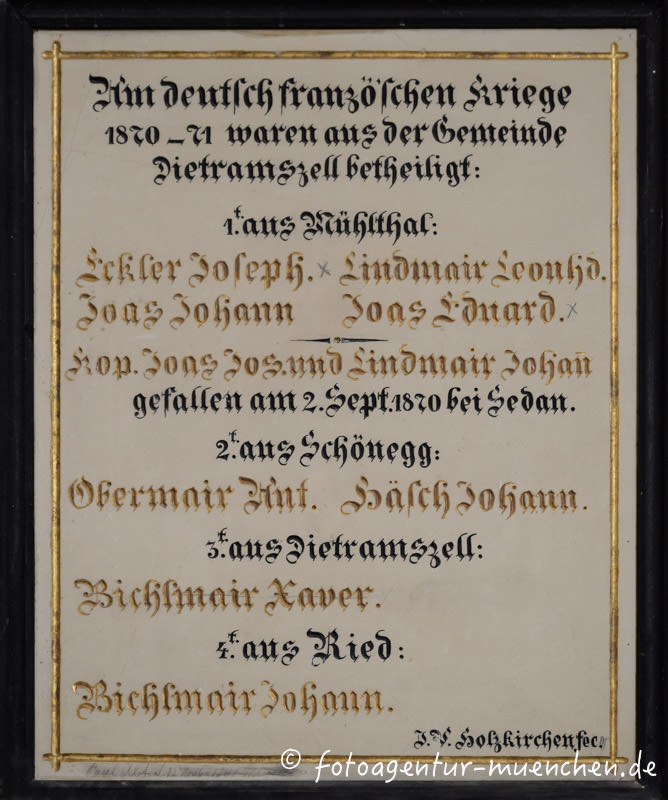 Am deutsch französ'schen Kriege
1870–71 waren aus der Gemeinde
Dietramszell betheiligt:
1.t aus Mühlthal:
Eckler Joseph. × Lindmair Leonhd.
Joas Johann Joas Eduard. ×
Kop. Joas Jos. und Lindmair Johan̄
gefallen am 2. Sept. 1870 bei Sedan.
2.t aus Schönegg:
Obermair Ant. Häsch Johann.
3.t aus Dietramszell:
Bichlmair Xaver.
4.t aus Ried:
Bichlmair Johann.
J. V. Holzkirchen fec.
© fotoagentur-muenchen.de